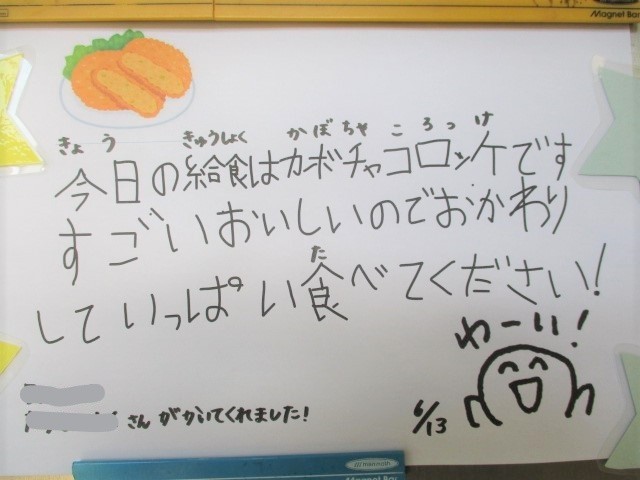 Magnet Bar
きょう きゅうしょく かぼちゃ ころっけ
今日の給食はカボチャコロッケです
すごいおいしいのでおかわり
た
していっぱい食べてください!
わーい!
さんがかいてくれました!
6/13
Magnet Bar